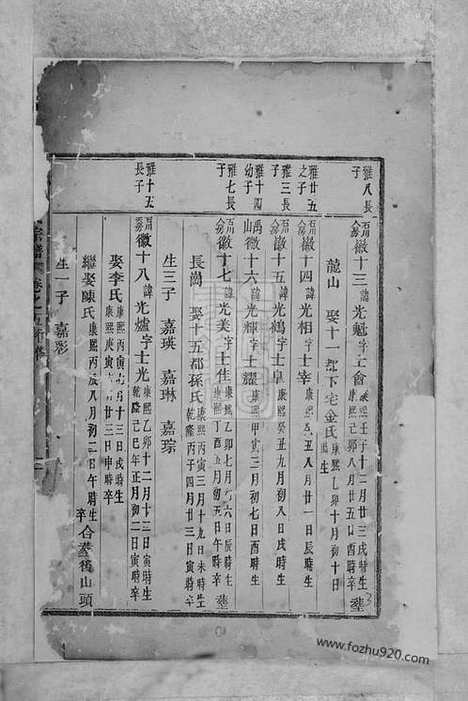 雅八長子
徽十三諱光魁字士會康熙壬子十二月廿三戌時生康熙己卯八月廿五日時卒 塟
龍山 娶十一都下宅金氏康熙乙卯十月初十日生
雅廿五之子
徽十四諱光相字士宰康熙 丑八月廿一日辰時生
雅三長子
徽十五諱光鶴字士皇康熙癸丑九月初八日戌時生
雅十四幼子
禹山徽十六諱光輝字士耀康熙甲寅三月初七日酉時生
雅七長子
徽十七諱光美字士佳康熙乙卯七月 六日辰時生 丁酉五月 塟
長崗 娶十五都孫氏康熙丙寅三月十九日未時生乾隆丙子四月廿三日寅時卒
生三子 嘉瑛 嘉琳 嘉琮
雅十五長子
徽十八諱光爐字士光康熙乙卯十二月十三日寅時生乾隆己巳年正月初二日寅時卒
娶李氏康熙丙寅七月十三日戌時生康熙庚寅六月廿三日申時卒
繼娶陳氏康熙丙辰八月初二日午時生 卒合塟後山頭
生一子 嘉彩
宗譜 卷之
www.fozhu920.com